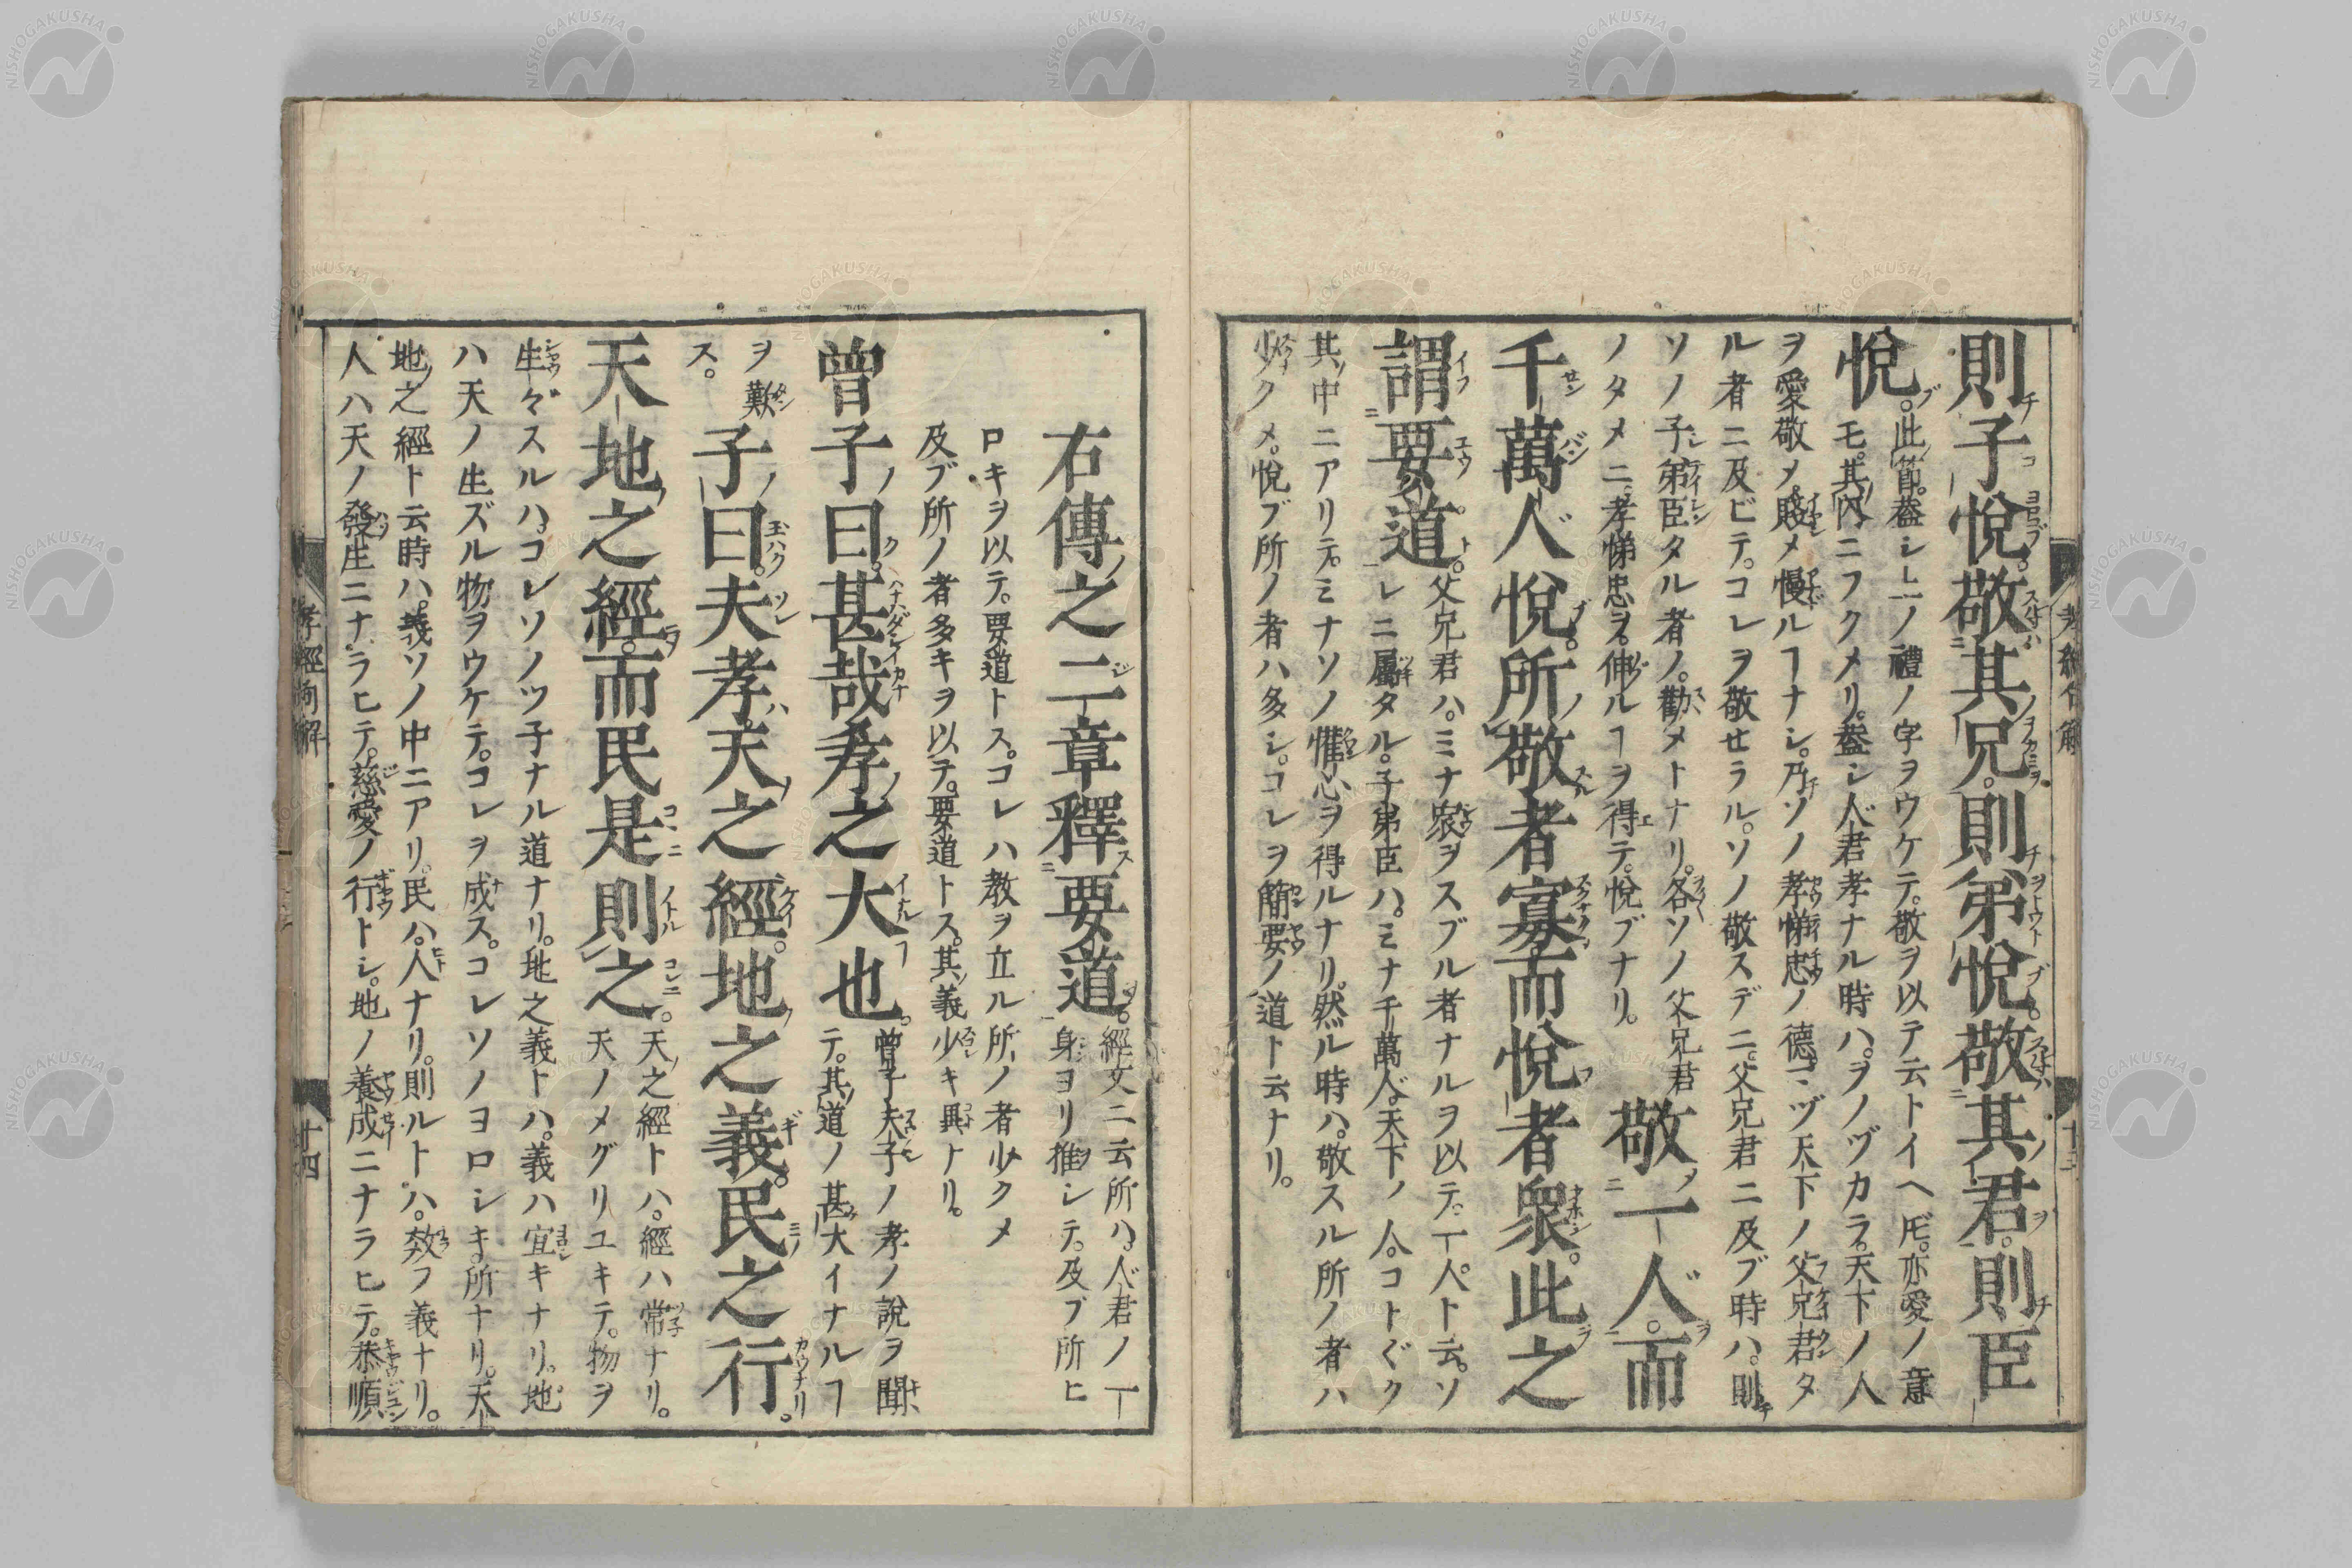 則子悅敬其兄則弟悅敬其君則臣
悅。此節。蓋シ上ノ禮ノ字ヲウケテ。敬ヲ以テ云トイヘ𪜈。亦愛ノ意
モ。其內ニフクメリ。蓋シ人君孝ナル時ハ。ヲノヅカラ。天下ノ人
ヲ愛敬メ。賤メ慢ルヿナシ。乃ソノ孝悌忠ノ德。マヅ天下ノ父兄君タ
ル者ニ及ビテ。コレヲ敬せラル。ソノ敬スデニ。父兄君ニ及ブ時ハ。則
ソノ子弟臣タル者ノ。勸メトナリ。各ソノ父兄君
ノタメニ。孝悌忠ヲ。伸ルヿヲ得テ。悅ブナリ。敬一人。而
千萬人悅。所敬者寡。而悅者衆。此之
謂要道。父兄君ハ。ミナ衆ヲスブル者ナルヲ以テ。一人ト云。ソ
レニ屬タル。子弟臣ハ。ミナ千萬人。天下ノ人。コトぐク
其中ニアリテ。ミナソノ懽心ヲ得ルナリ。然ル時ハ。敬スル所ノ者ハ
少クメ。悅ブ所ノ者ハ多シ。コレヲ簡要ノ道ト云ナリ。
十三
右傳之二章釋要道。經文ニ云所ハ。人君ノ一
身ヨリ推シテ。及ブ所ヒ
ロキヲ以テ。要道トス。コレハ教ヲ立ル所ノ者少クメ
及ブ所ノ者多キヲ以テ。要道トス。其義少キ異ナリ。
曾子曰。甚哉孝之大也。曾子夫子ノ孝ノ說ヲ聞
テ。其道ノ甚大イナルヿ
ヲ歎
ス。子曰。夫孝。天之經。地之義。民之行。
天地之經。而民是則之。天之經トハ。經ハ常ナリ。
天ノメグリユキテ。物ヲ
生々スルハ。コレソノツ子ナル道ナリ。地之義トハ。義ハ宜キナリ。地
ハ天ノ生ズル物ヲウケテ。コレヲ成ス。コレソノヨロシキ。所ナリ。天
地之經ト云時ハ。義ソノ中ニアリ。民ハ。人ナリ。則ルトハ。效フ義ナリ。
人ハ天ノ發生ニナラヒテ。慈愛ノ行トシ。地ノ養成ニナラヒテ。恭順
孝經句解
十四